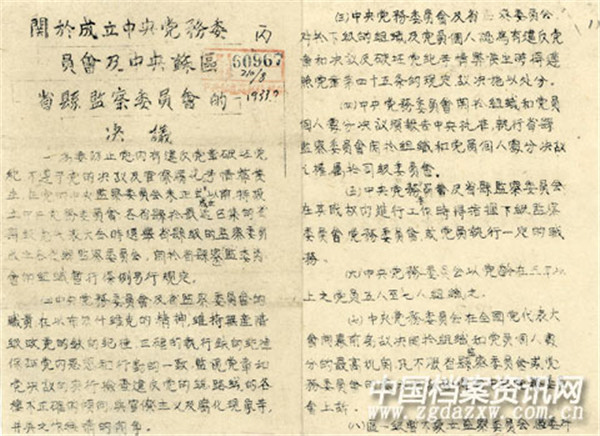 關於成立中央党務委
員會及中央蘇區
省縣監察委員會的
決議
丙
60967
210/8
1933.9
一、為要防止党內有違反党章破壞党
紀不遵守党的決議及官僚腐化等情弊發
生,在党的中央監察委員會未正式成立以前,特設
立中央党務委員會,各省縣於最近召集的省
縣級党代表大會時選舉省縣級的監察委員
成立各省縣監察委員會,關於省縣監察委員
會的組織暫行條例另行規定。
二、中央党務委員會及省縣監察委員會的
職責在以布尔什維克的精神,維持無產階
級政党的鉄的紀律,正確的執行鉄的紀律
保証党內思想和行動的一致,監視党章和
党決議的实行檢查違反党的總路線的各
種不正確的傾向與官僚主义及腐化現象等,
并與之作無情的鬥爭。
(三)中央党務委員會及省縣監察委員會
對於下級的組織及党員個人認為有違反党
章和決議及破壞党紀等情弊發生時得遵
照党章第四十五條的規定,議決施以處分。
(四)中央党務委員會關於組織和党員
個人處分決議須報告中央批准,執行省縣
監察委員會關於組織和党員個人處分決議
之權屬於同級委員會。
(五)中央党務委員會及省縣監察委員會
在其職权內進行工作時得指揮下級監察
委員會党務委員會,或党員執行一定的職
務。
(六)中央党務委員會以党齡在三年以
上之党員五人至七人組織之。
(七)中央党務委員會在全國党代表大
會開幕前為議決關於組織和党員個人處
分的最高机關,凡不服省縣監委會或党
務委員會
會上訴。
(八)區一級會不設立監委會,縣委于
中国档案资讯网
www.zgdazxw.com.cn